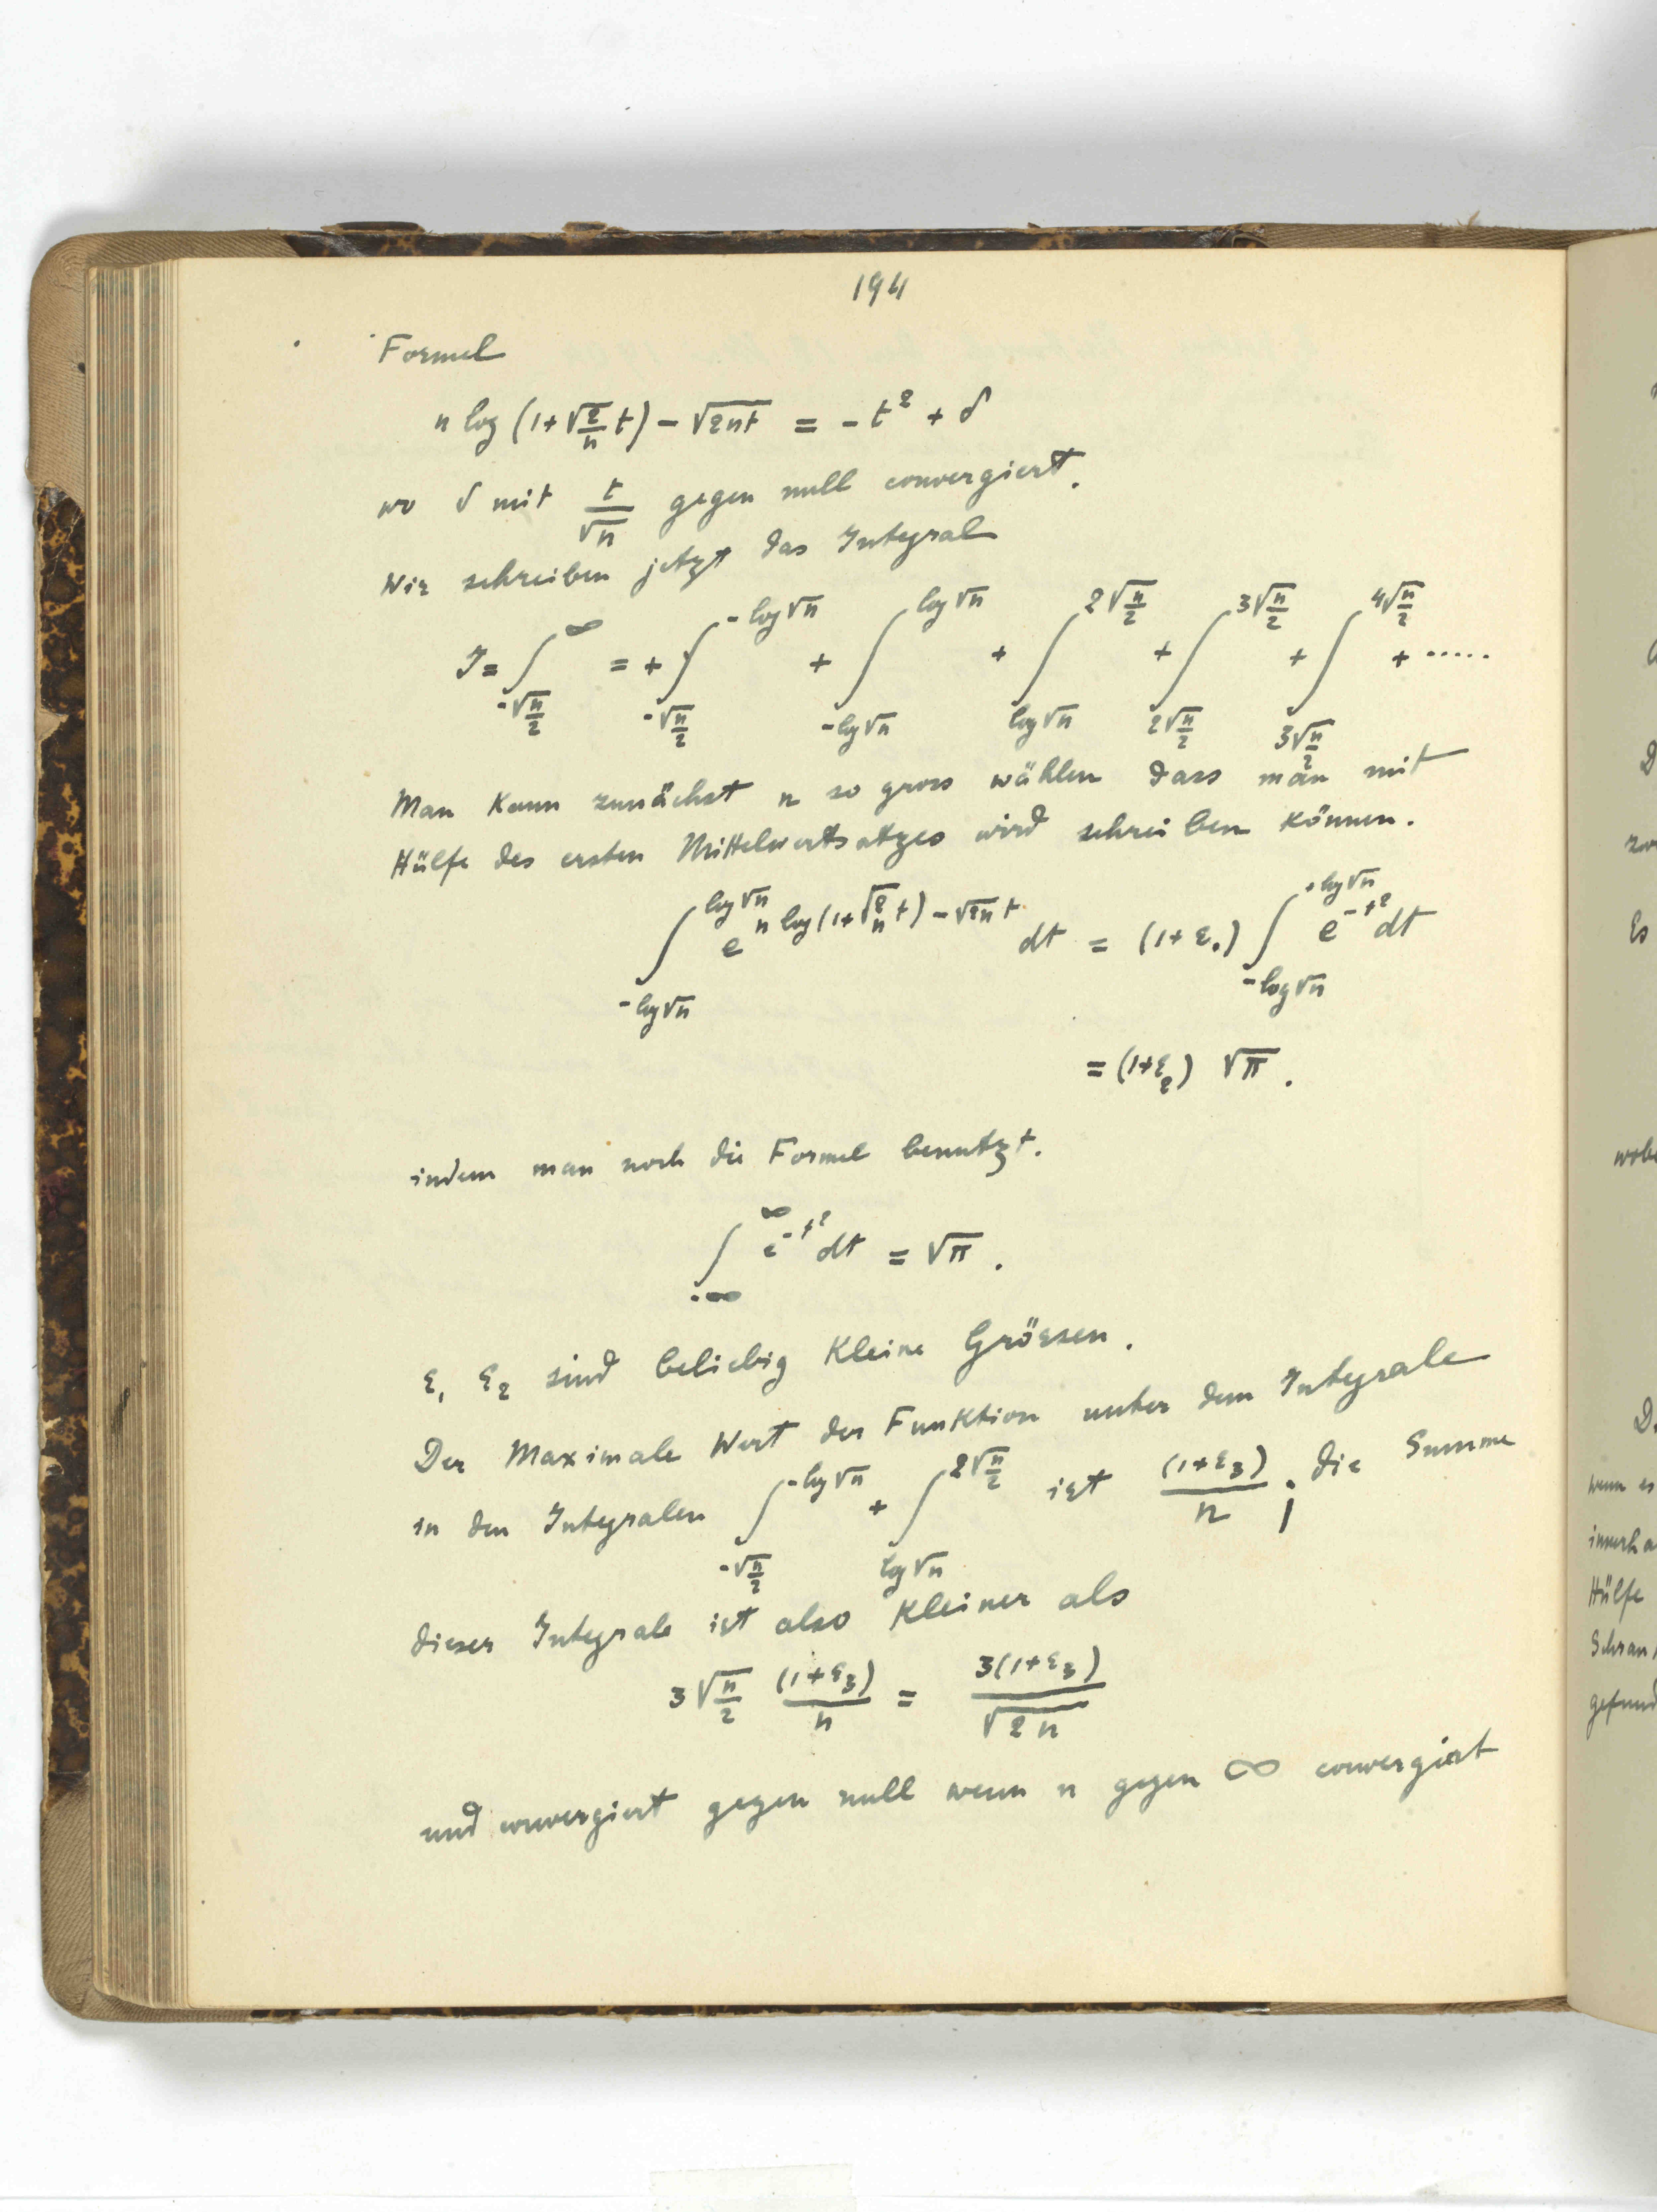 194
Formel
n log (1+√(2/n) t) − √2nt = − t² + δ
wo δ mit t/√n gegen null convergiert.
Wir schreiben jetzt das Integral
J = ∫_{-√(n/2)}^{∞} = + ∫_{-√(n/2)}^{-log √n} + ∫_{-log √n}^{log √n} + ∫_{log √n}^{2√(n/2)} + ∫_{2√(n/2)}^{3√(n/2)} + ∫_{3√(n/2)}^{4√(n/2)} + .....
Man kann zunächst n so gross wählen dass man mit
Hülfe des ersten Mittelwertsatzes wird schreiben können.
∫_{-log √n}^{log √n} e^{n log(1+√(2/n) t) − √2n t} dt = (1+ε₁) ∫_{-log √n}^{+log √n} e^{-t²} dt
= (1+ε₂) √π .
indem man noch die Formel benutzt.
∫_{-∞}^{∞} e^{-t²} dt = √π .
ε₁ ε₂ sind beliebig kleine Grössen.
Der Maximale Wert der Funktion unter dem Integrale
in den Integralen ∫_{-√(n/2)}^{-log √n} + ∫_{log √n}^{2√(n/2)} ist (1+ε₃)/n ; die Summe
dieser Integrale ist also kleiner als
3√(n/2) (1+ε₃)/n = 3(1+ε₃)/√2n
und convergiert gegen null wenn n gegen ∞ convergiert
wenn es
Hülfe